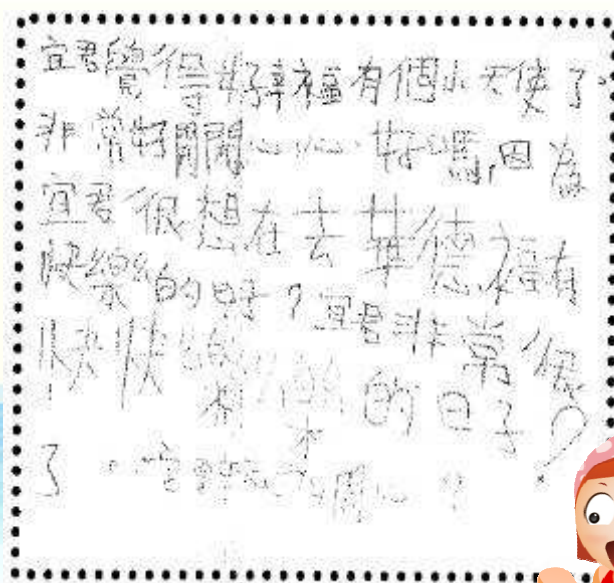 宜君覺得好幸福有個小天使了。
非常好開開心心好嗎,因為
宜君很想在去華德福有
快樂的日子?宜君非常很
快快樂樂的日子?
了。開心